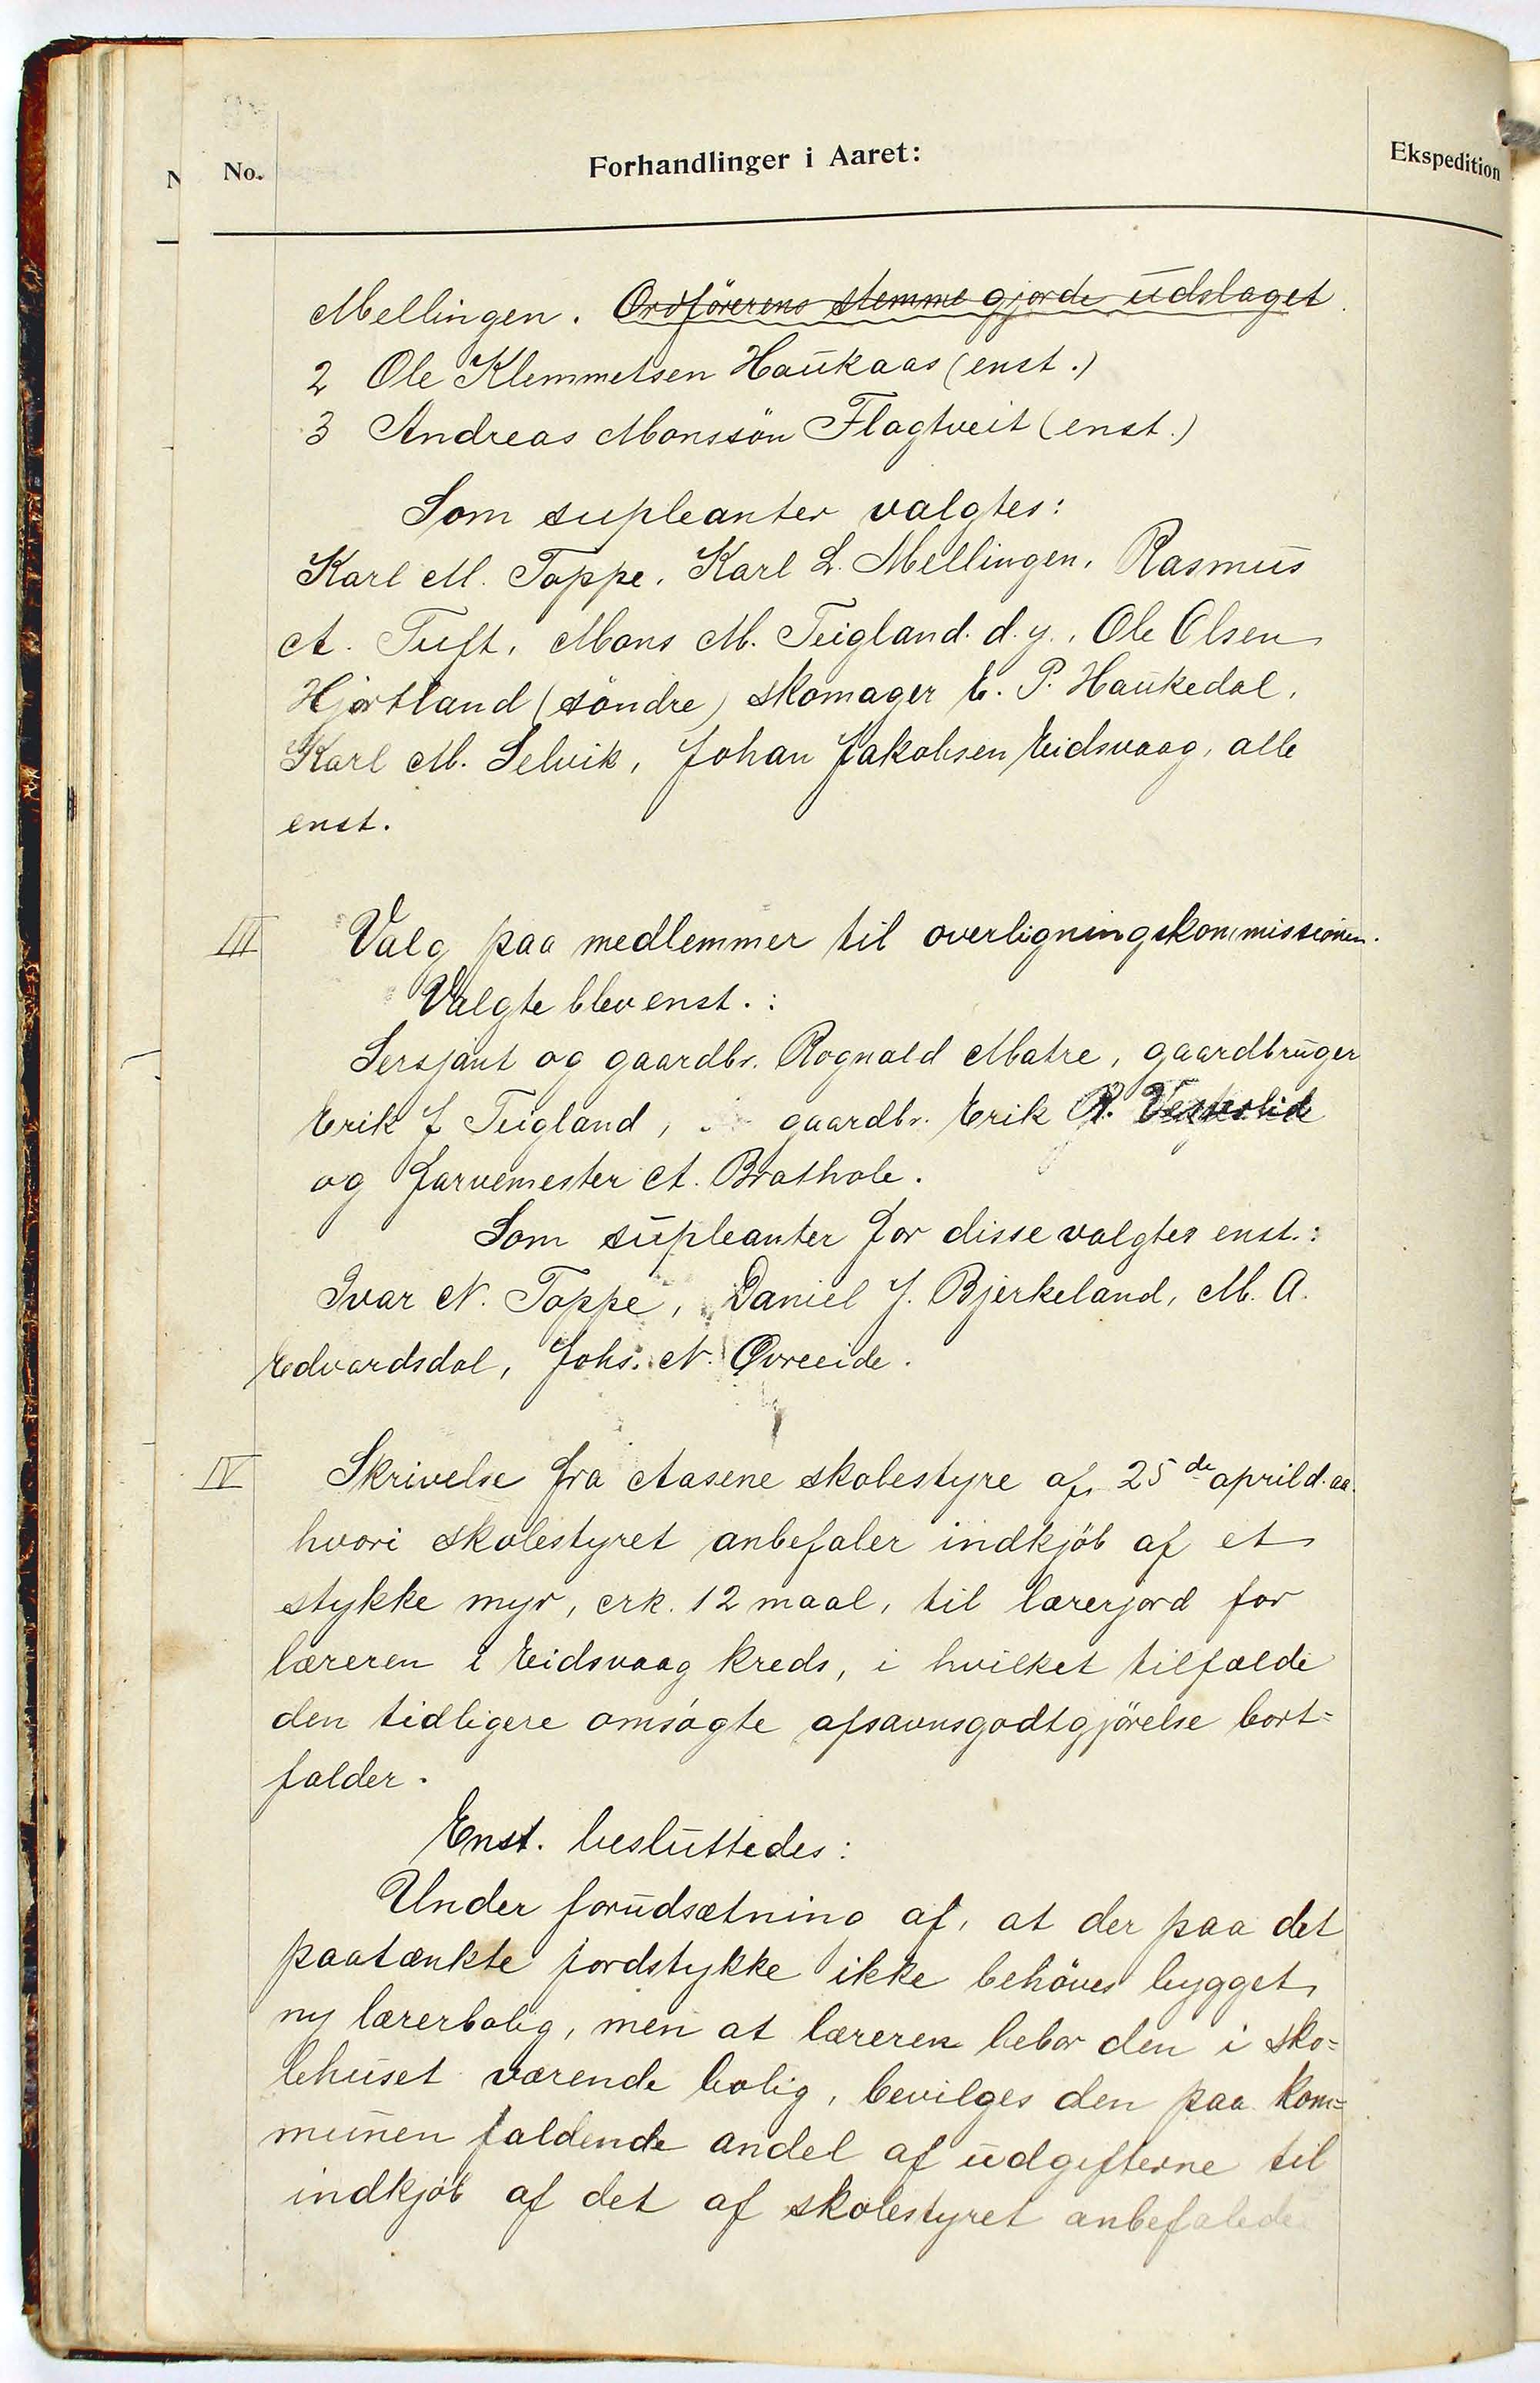 No.
Forhandlinger i Aaret:
Ekspedition
Mellingen. Ordförerens stemme gjorde udslaget.
2 Ole Klemmetsen Haukaas (enst.)
3 Andreas Monssön Flagtveit (enst.)
Som supleanter valgtes:
Karl M. Toppe, Karl L. Mellingen, Rasmus
A. Tuft, Mons M. Teigland d.y., Ole Olsen
Hjortland (söndre) skomager E. P. Haukedal,
Karl M. Selvik, Johan Jakobsen Eidsvaag, alle
enst.
III Valg paa medlemmer til overligningskommissionen.
Valgte blev enst.:
Sersjant og gaardbr. Rognald Matre, gaardbruger
Erik J Teigland, gaardbr. Erik P. Vestrelide
og farvemester A. Brathole.
Som supleanter for disse valgtes enst.:
Ivar N. Toppe, Daniel J. Bjerkeland, M. A.
Edvardsdal, Johs. N. Øvreeide.
IV Skrivelse fra Aasene skolestyre af 25de april d. aa.
hvori skolestyret anbefaler indkjöb af et
stykke myr, crk. 12 maal, til lærerjord for
læreren i Eidsvaag kreds, i hvilket tilfælde
den tidligere omsögte afsavnsgodtgjörelse bort=
falder.
Enst. besluttedes:
Under forudsætning af, at der paa det
paatænkte jordstykke ikke behöves bygget
ny lærerbolig, men at læreren bebor den i sko=
lehuset værende bolig, bevilges den paa kom=
munen faldende andel af udgifterne til
indkjöb af det af skolestyret anbefalede